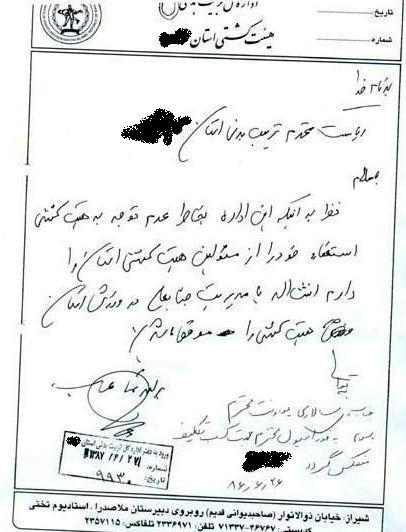 اداره کل تربیت بدنی
هیئت کشتی استان
تاریخ:
شماره:
بنام خدا
ریاست محترم تربیت بدنی استان
بسلام
نظر به اینکه این اداره بخاطر عدم توجه به هیت کشتی
استعفاء خود را از مسئولین هیت کشتی استان را
دارم انشااله با مدیریت جنابعالی در ورزش استان
هیت کشتی را موفق باشد
جناب سالاری معاونت محترم
بسلام به مسئول محترم جهت کسب تکلیف
منعکس گردد
۸۶,۶,۲۶
ورود به دفتر اداره کل تربیت بدنی استان
شماره:
۹۹۳۰
شیراز: خیابان ذوالانوار (صاحبدیوانی قدیم) روبروی دبیرستان ملاصدرا - استادیوم تختی
کدپستی: ۲۶۷۶۷-۷۱۳۳۷ تلفن: ۲۳۳۶۹۷۱ تلفاکس: ۲۳۵۷۱۱۵